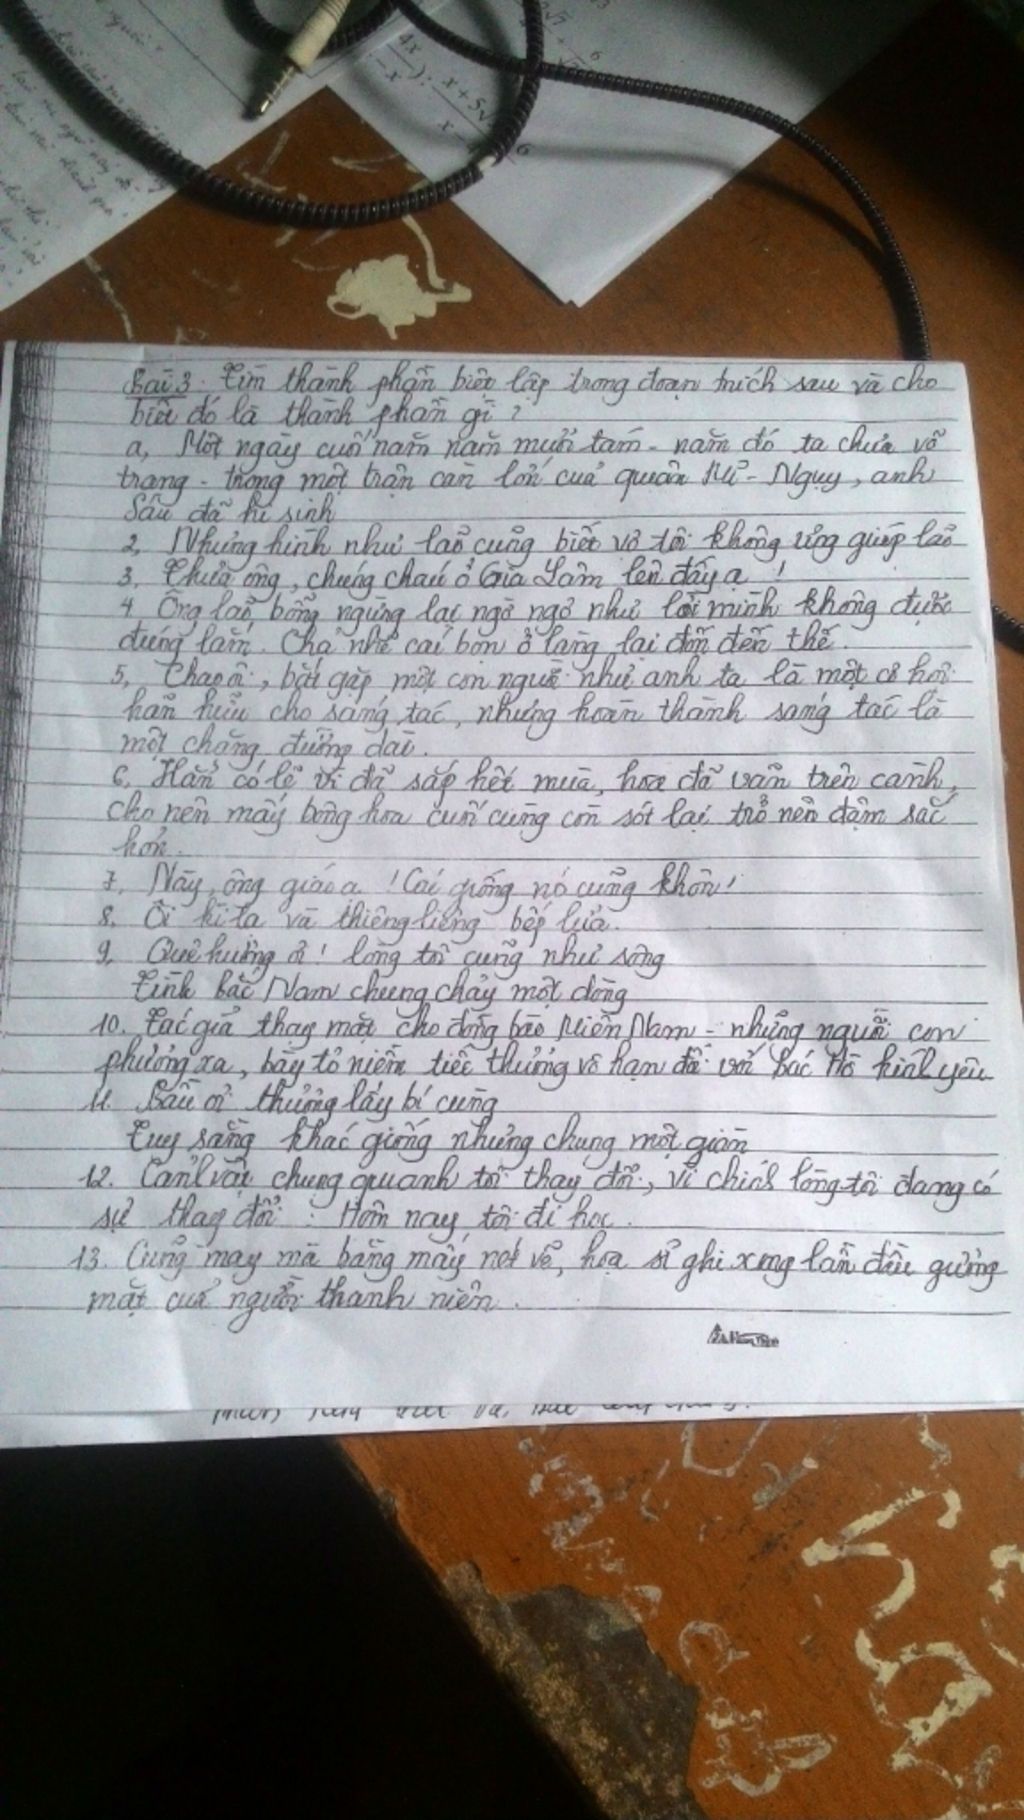 4x
-x
): x+5√
x
6
Bài 3. Tìm thành phần biệt lập trong đoạn trích sau và cho
biết đó là thành phần gì?
a, Một ngày cuối năm năm mươi tám - năm đó ta chưa võ
trang - trong một trận càn lớn của quân Mĩ - Ngụy, anh
Sáu đã hi sinh
2, Nhưng hình như lão cũng biết vợ tôi không ưng giúp lão
3, Thưa ông, chúng cháu ở Gia Lâm lên đấy ạ!
4 Ông lão, bỗng ngừng lại ngờ ngợ như lời mình không được
đúng lắm. Chả nhẽ cái bọn ở làng lại đốn đến thế.
5, Chao ôi, bắt gặp một con người như anh ta là một cơ hội
hãn hữu cho sáng tác, nhưng hoàn thành sáng tác là
một chặng đường dài.
6. Hẳn có lẽ vì đã sắp hết mùa, hoa đã vãn trên cành,
cho nên mấy bông hoa cuối cùng còn sót lại trở nên đậm sắc
hơn.
7, Này, ông giáo ạ! Cái giống nó cũng khôn!
8. Ôi kì lạ và thiêng liêng bếp lửa.
9, Quê hương ơi! lòng tôi cũng như sông
Tình Bắc Nam chung chảy một dòng
10. Tác giả thay mặt cho đồng bào Miền Nam - những người con
phương xa, bày tỏ niềm tiếc thương vô hạn đối với Bác Hồ kính yêu
11. Bầu ơi thương lấy bí cùng
Tuy rằng khác giống nhưng chung một giàn
12. Cảnh vật chung quanh tôi thay đổi, vì chính lòng tôi đang có
sự thay đổi: Hôm nay tôi đi học.
13. Cũng may mà bằng mấy nét vẽ, họa sĩ ghi xong lần đầu gương
mặt của người thanh niên.